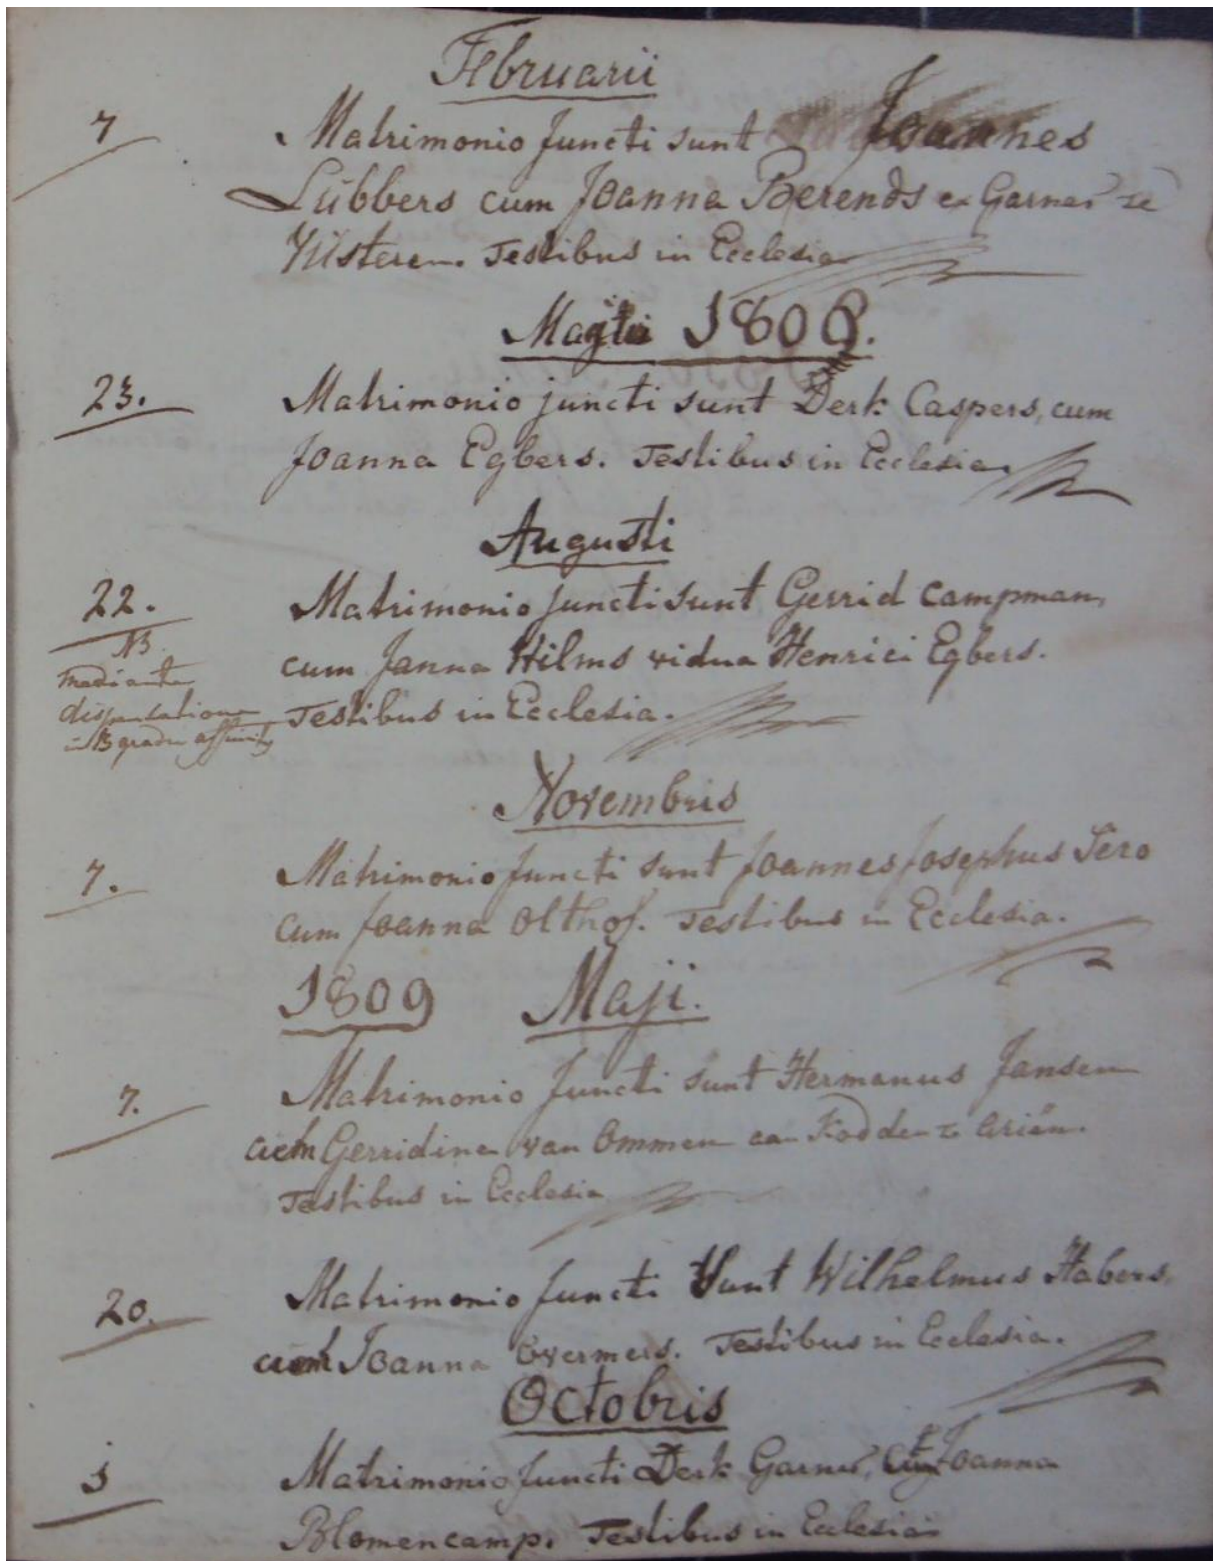 Februarii
7 Matrimonio Juncti sunt Joannes
Lübbers cum Joanna Berends ex Garner te
Testibus in Ecclesia
Maji 1808.
23. Matrimonio juncti sunt Derk Caspers, cum
Joanna Egbers. Testibus in Ecclesia
Augusti
22. Matrimonio juncti sunt Gerrid Campman,
NB.
cum Janna Hilms vidua Henrici Egbers.
mediante
dispensatione Testibus in Ecclesia.
in 3 gradu affinit
Novembris
7. Matrimonio Juncti sunt Joannes Josephus Sero
cum Joanna Olthof. Testibus in Ecclesia.
1809 Maji.
7. Matrimonio Juncti sunt Hermanus Jansen
cum Gerridina van Ommen aan Kodden te Ariën.
Testibus in Ecclesia
20. Matrimonio Juncti Sunt Wilhelmus Habers
cum Joanna Overmers. Testibus in Ecclesia.
Octobris
Matrimonio Juncti Derk Garner, Cum Joanna
Blomencamp. Testibus in Ecclesia